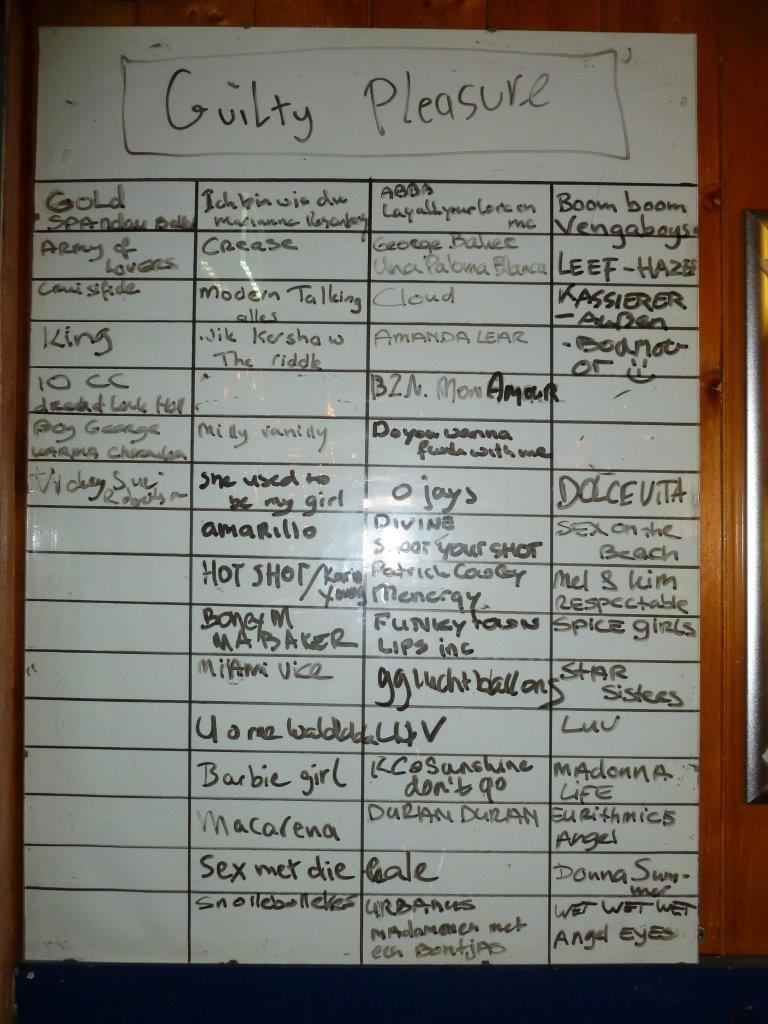 Guilty Pleasure
GOLD
SPANDAU Balle
Ich bin wie du
Marianna Rosenberg
ABBA
Lay all your love on
me
Boom boom
Vengaboys
ARMY of
LOVERS
Crease
George Baker
Una Paloma Blanca
LEEF-HAZES
Crusifide
Modern Talking
alles
Cloud
KASSIERER
- AuBen
King
Nik Kershaw
The riddle
AMANDA LEAR
10 CC
dreadlock Holl
B.Z.N. Mon Amour
OT
Boy George
KARMA
Milly vanilly
Do you wanna
funk with me
Vickey Sue
she used to
be my girl
O jays
DOLCE VITA
amarillo
DIVINE
SHOOT YOUR SHOT
SEX on the
Beach
HOT SHOT / Karin
Young
Patrick Cowley
Menergy
Mel & kim
RESPECTABLE
BONEY M
MA BAKER
FUNKY TOWN
LIPS inc
SPICE GIRLS
MIAMI VICE
99 luchtballons
STAR
Sisters
LUV
U o me
LUV
Barbie girl
KC & Sunshine
don't go
MADONNA
LIFE
Macarena
DURAN DURAN
Eurithmics
Angel
Sex met die kale
Donna Sum-
mer
snollebollekes
URBANUS
madammen met
een BontjAs
WET WET WET
Angel EYES